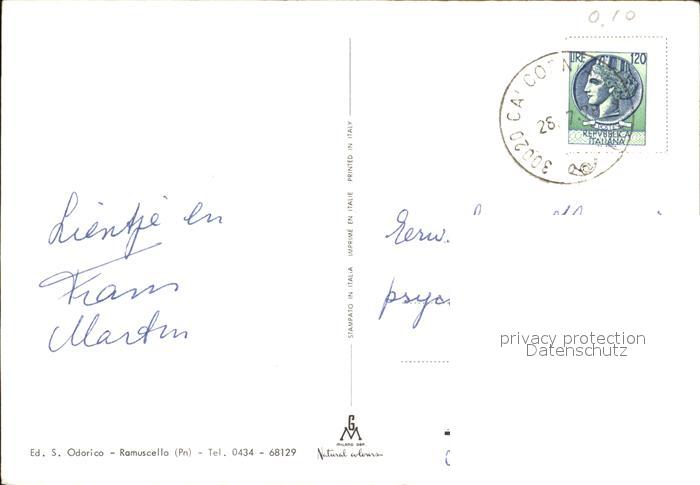 0.10
LIRE 120
POSTE
REPVBBLICA
ITALIANA
30020 CA' CORN
26. 7.
Lientje en
Frans
Martin
Eerw.
psyc
STAMPATO IN ITALIA IMPRIMÉ EN ITALIE PRINTED IN ITALY
privacy protection
Datenschutz
GM
MILANO DEP.
Natural colours
Ed. S. Odorico - Ramuscello (Pn) - Tel. 0434 - 68129